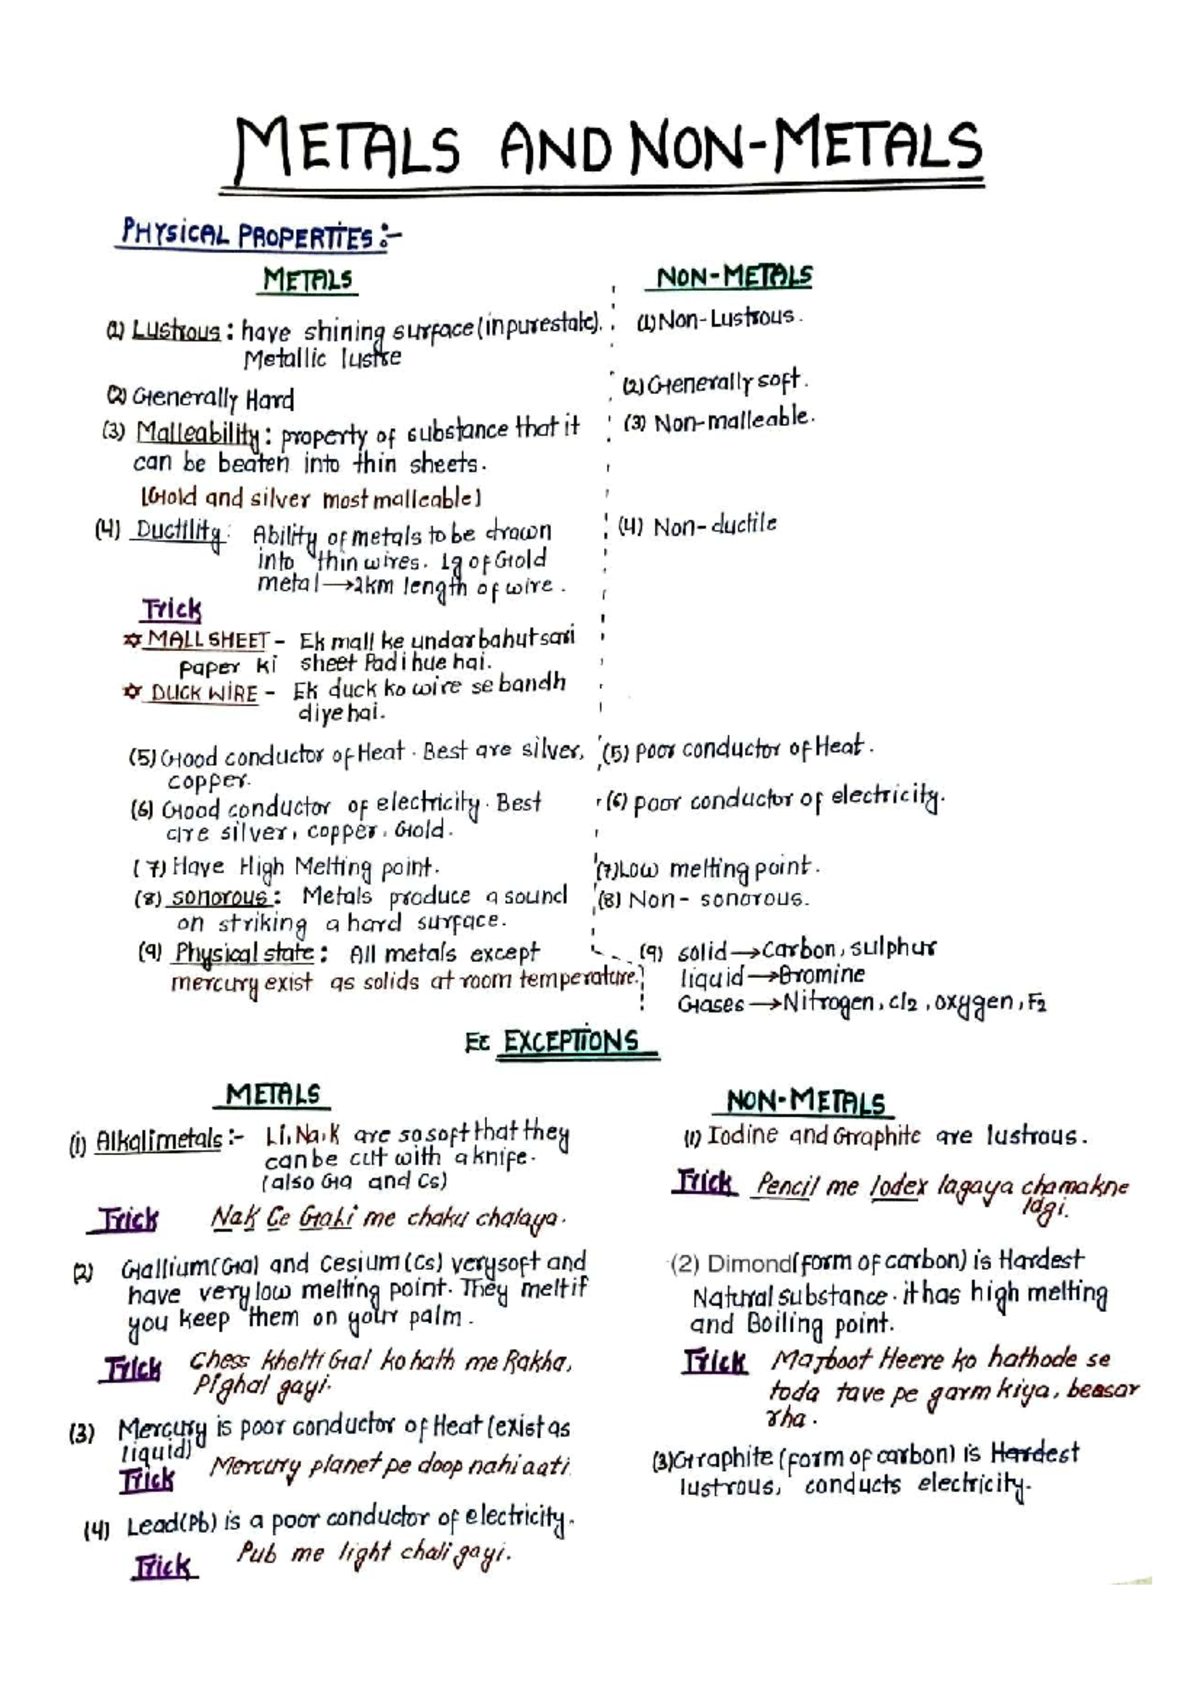 METALS AND NON-METALS
PHYSICAL PROPERTIES :-
METALS
(1) Lustrous : have shining surface (in pure state).
Metallic lustre
(2) Generally Hard
(3) Malleability : property of substance that it
can be beaten into thin sheets.
[Gold and silver most malleable]
(4) Ductility : Ability of metals to be drawn
into thin wires. 1g of Gold
metal → 2km length of wire.
Trick
☆ MALL SHEET - Ek mall ke undar bahut sari
paper ki sheet Padi hue hai.
☆ DUCK WIRE - Ek duck ko wire se bandh
diye hai.
(5) Good conductor of Heat. Best are silver,
copper.
(6) Good conductor of electricity. Best
are silver, copper, Gold.
(7) Have High Melting point.
(8) sonorous : Metals produce a sound
on striking a hard surface.
(9) Physical state : All metals except
mercury exist as solids at room temperature.
NON-METALS
(1) Non-Lustrous.
(2) Generally soft.
(3) Non-malleable.
(4) Non-ductile
(5) poor conductor of Heat.
(6) poor conductor of electricity.
(7) Low melting point.
(8) Non-sonorous.
(9) solid → Carbon, sulphur
liquid → Bromine
Gases → Nitrogen, Cl2, oxygen, F2
EXCEPTIONS
METALS
(i) Alkalimetals :- Li, Na, K are so soft that they
can be cut with a knife.
(also Ga and Cs)
Trick NaK Ce GaLi me chaku chalaya.
(2) Gallium (Ga) and Cesium (Cs) very soft and
have very low melting point. They melt if
you keep them on your palm.
Trick Chess khelti Gal ko hath me Rakha,
Pighal gayi.
(3) Mercury is poor conductor of Heat (exist as
liquid)
Trick Mercury planet pe doop nahi aati
(4) Lead (Pb) is a poor conductor of electricity.
Trick Pub me light chali gayi.
NON-METALS
(1) Iodine and Graphite are lustrous.
Trick Pencil me Iodex lagaya chamakne
lagi.
(2) Dimond (form of carbon) is Hardest
Natural substance. it has high melting
and Boiling point.
Trick Majboot Heere ko hathode se
toda tave pe garm kiya, beasar
rha.
(3) Graphite (form of carbon) is Hardest
lustrous, conducts electricity.